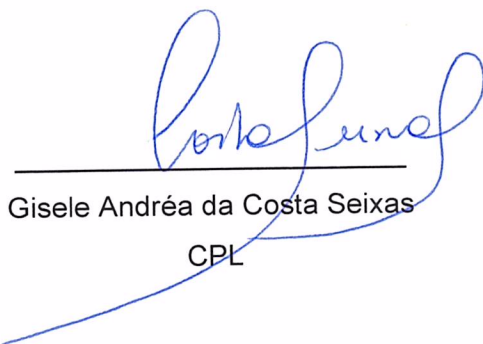 Gisele Andréa da Costa Seixas
CPL